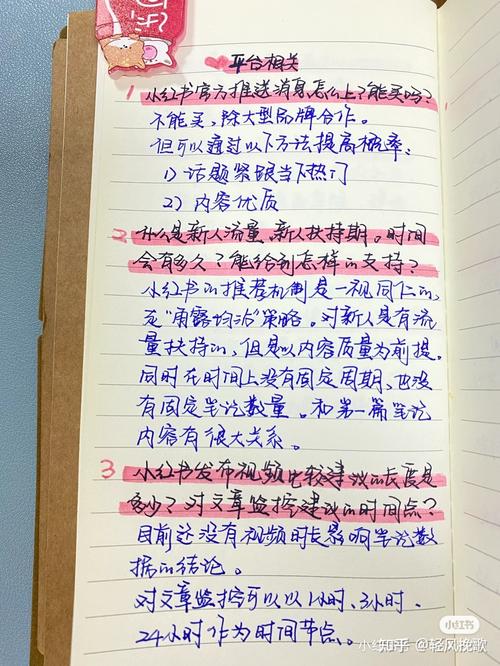 平台相关
1 小红书官方推送消息怎么上？能买吗？
不能买，除大型品牌合作。
但可以通过以下方法提高概率：
1) 话题紧跟当下热门
2) 内容优质
2. 什么是新人流量、新人扶持期。时间
会有多久？能给到怎样的支持？
小红书的推荐机制是一视同仁的，
是"雨露均沾"策略。对新人是有流
量扶持的，但是以内容质量为前提。
同时在时间上没有固定周期，也没
有固定笔记数量。和第一篇笔记
内容有很大关系。
3 小红书发布视频比较建议的长度是
多少？对文章监控建议的时间点？
目前还没有视频时长影响笔记数
据的结论。
对文章监控可以以1小时、3小时、
24小时作为时间节点。
小红书
知乎 @轻风挽歌